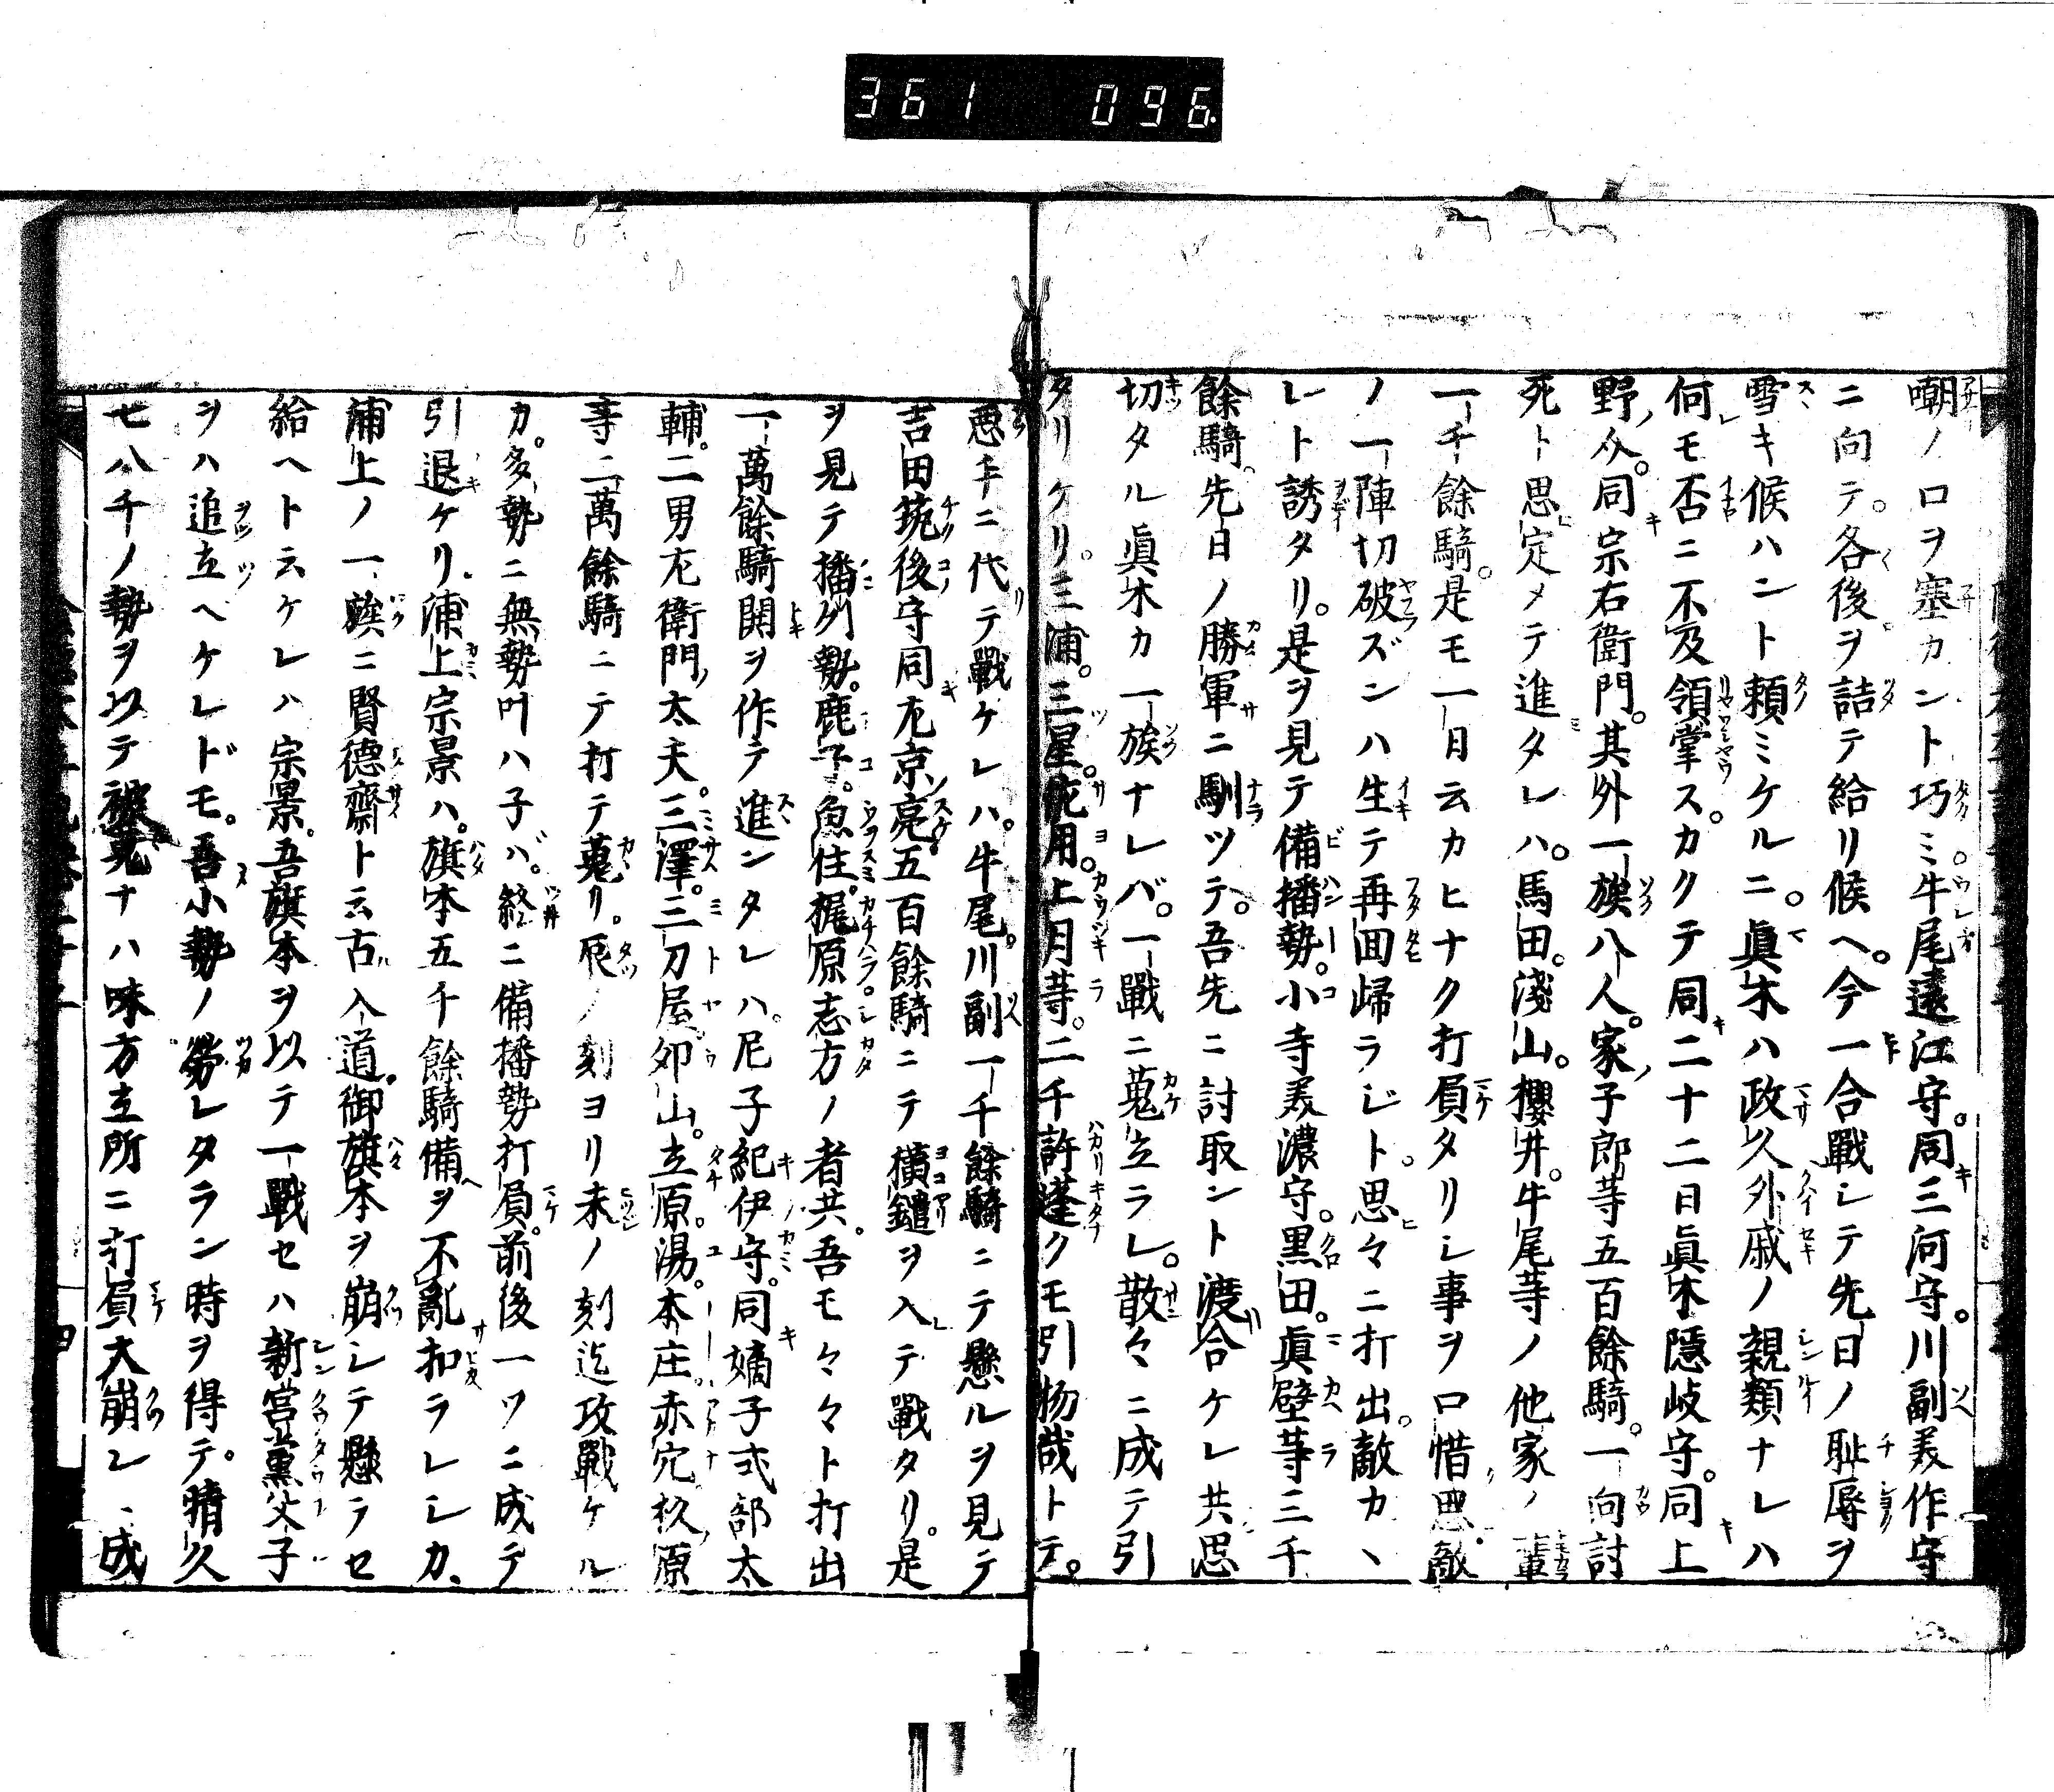 361 096
嘲ノ口ヲ塞カント巧ミ牛尾遠江守。同三河守。川副美作守
ニ向テ。各後ヲ詰テ給リ候ヘ。今一合戰シテ先日ノ恥辱ヲ
雪キ候ハント頼ミケルニ。眞木ハ政久外戚ノ親類ナレハ
何モ否ニ不及領掌ス。カクテ同二十二日眞木隱岐守。同上
野介。同宗右衛門。其外一族八人。家子郎等五百餘騎。一向討
死ト思定メテ進タレハ。馬田。淺山。櫻井。牛尾等ノ他家ノ輩
一千餘騎。是モ一日云カヒナク打負タリシ事ヲ口惜思。敵
ノ一陣切破ズンハ生テ再回歸ラジト。思々ニ打出。敵カヽ
レト誘タリ。是ヲ見テ備播勢。小寺美濃守。黒田。眞壁等三千
餘騎。先日ノ勝軍ニ馴ツテ。吾先ニ討取ント渡合ケレ共。思
切タル眞木カ一族ナレバ。一戰ニ蒐立ラレ。散々ニ成テ引
タリケリ。三浦。三星。佐用。上月等。二千許蓬クモ引物哉トテ。
悪手ニ代テ戰ケレハ。牛尾。川副一千餘騎ニテ懸ルヲ見テ
吉田筑後守同左京亮。五百餘騎ニテ橫鑓ヲ入テ戰タリ。是
ヲ見テ播州勢。鹿子。魚住。梶原志方ノ者共。吾モ々々ト打出
一萬餘騎鬨ヲ作テ進ンタレハ。尼子紀伊守。同嫡子式部太
輔。二男左衛門太夫。三澤。三刀屋卯山。立原。湯。本庄。赤穴。杦原
等二萬餘騎ニテ打テ蒐リ。辰ノ刻ヨリ未ノ刻迄攻戰ケル
カ。多勢ニ無勢叶ハ子バ。終ニ備播勢打負。前後一ツニ成テ
引退ケリ。浦上宗景ハ。旗本五千餘騎備ヲ不亂扣ラレシカ、
浦上ノ一族ニ賢德齋ト云古入道。御旗本ヲ崩シテ懸ラセ
給ヘト云ケレハ宗景。吾旗本ヲ以テ一戰セハ新宮黨父子
ヲハ追立ヘケレドモ。吾小勢ノ勞レタラン時ヲ得テ。晴久
七八千ノ勢ヲ以テ被蒐ナハ味方立所ニ打負大崩レニ成